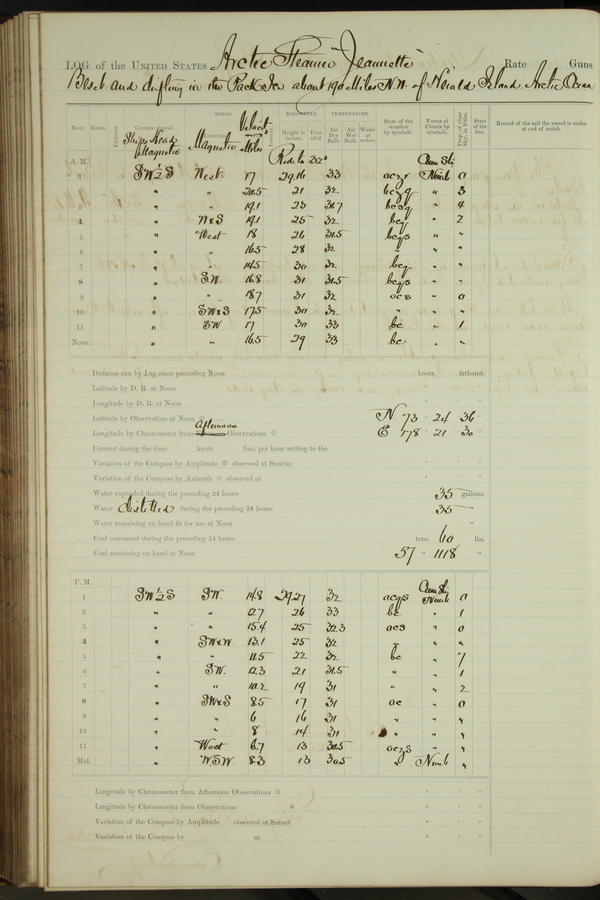 LOG of the UNITED STATES Arctic Steamer "Jeannette" Rate Guns
Beset and drifting in the Pack Ice about 190 Miles N.W. of Herald Island Arctic Ocean
Hour. Knots. Courses steered. WINDS. BAROMETER. TEMPERATURE. State of the weather by symbols. Forms of Clouds by symbols. Prop. of clear Sky, in 10ths. State of the Sea. Record of the sail the vessel is under at end of watch.
Ships Head Magnetic Magnetic Velocity Miles Height in inches. Ther. att'd. Air Dry Bulb. Air Wet Bulb. Water at Surface.
A. M. Red. to 32° Cum Sti
1 SW½S West 17 29.16 33 Nimb 0
2 " " 20.5 21 32 bczq " 3
3 " " 19.1 23 31.7 " 4
4 " WxS 19.1 25 32 bcq " 2
5 " West 18 26 31.5 bcqs " "
6 " " 16.5 28 32 " " "
7 " " 14.5 30 32 bcq " "
8 " SW. 16.8 31 31.5 bcqs " "
9 " " 18.7 31 32 ocs " 0
10 " SWxS 17.5 30 32 " " "
11 " SW 17 30 33 bc " 1
Noon. " " 16.5 29 33 bc " "
Distance run by Log since preceding Noon knots, fathoms.
Latitude by D. R. at Noon
Longitude by D. R. at Noon
Latitude by Observation at Noon N 73 24 36
Longitude by Chronometer from Afternoon Observations E 178 21 30
Current during the time knots fms. per hour setting to the
Variation of the Compass by Amplitude observed at Sunrise
Variation of the Compass by Azimuth observed at
Water expended during the preceding 24 hours 35 gallons.
Water distilled during the preceding 24 hours 35 "
Water remaining on hand fit for use at Noon "
Coal consumed during the preceding 24 hours tons. 60 lbs.
Coal remaining on hand at Noon 57 " 1118 "
P. M. Cum Sti
1 SW½S SW. 14.8 29.27 32 Nimb 0
2 " " 12.7 26 33 bc " 1
3 " " 15.4 25 32.3 ocs " 0
4 " SWxW 13.1 25 32 " " "
5 " " 11.5 22 32 bc " 7
6 " SW. 12.3 21 31.5 " " 1
7 " " 10.2 19 31 " " 2
8 " SWxS 8.5 17 31 oc " 0
9 " " 6 16 31 " " "
10 " " 8 14 31 " "
11 " West 6.7 13 30.5 " "
Mid. " WSW. 8.3 13 30.5 " Nimb "
Longitude by Chronometer from Afternoon Observations
Longitude by Chronometer from Observations
Variation of the Compass by Amplitude observed at Sunset
Variation of the Compass by at